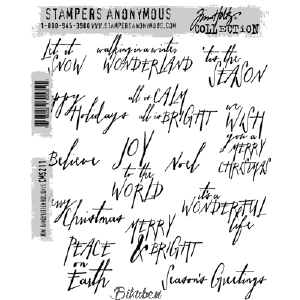 STAMPERS ANONYMOUS
1-800-945-3980 WWW.STAMPERSANONYMOUS.COM
Tim Holtz
COLLECTION
let it
SNOW
walking in a winter
WONDERLAND
'tis the
SEASON
ppy
Holidays
all is CALM
all is BRIGHT
we
WISH
you a
MERRY
CHRISTMAS
Believe
JOY
to the
WORLD
Noel
Christmas
it's a
WONDERFUL
life
MERRY
& BRIGHT
PEACE
on
Earth
Season's Greetings
CMS211